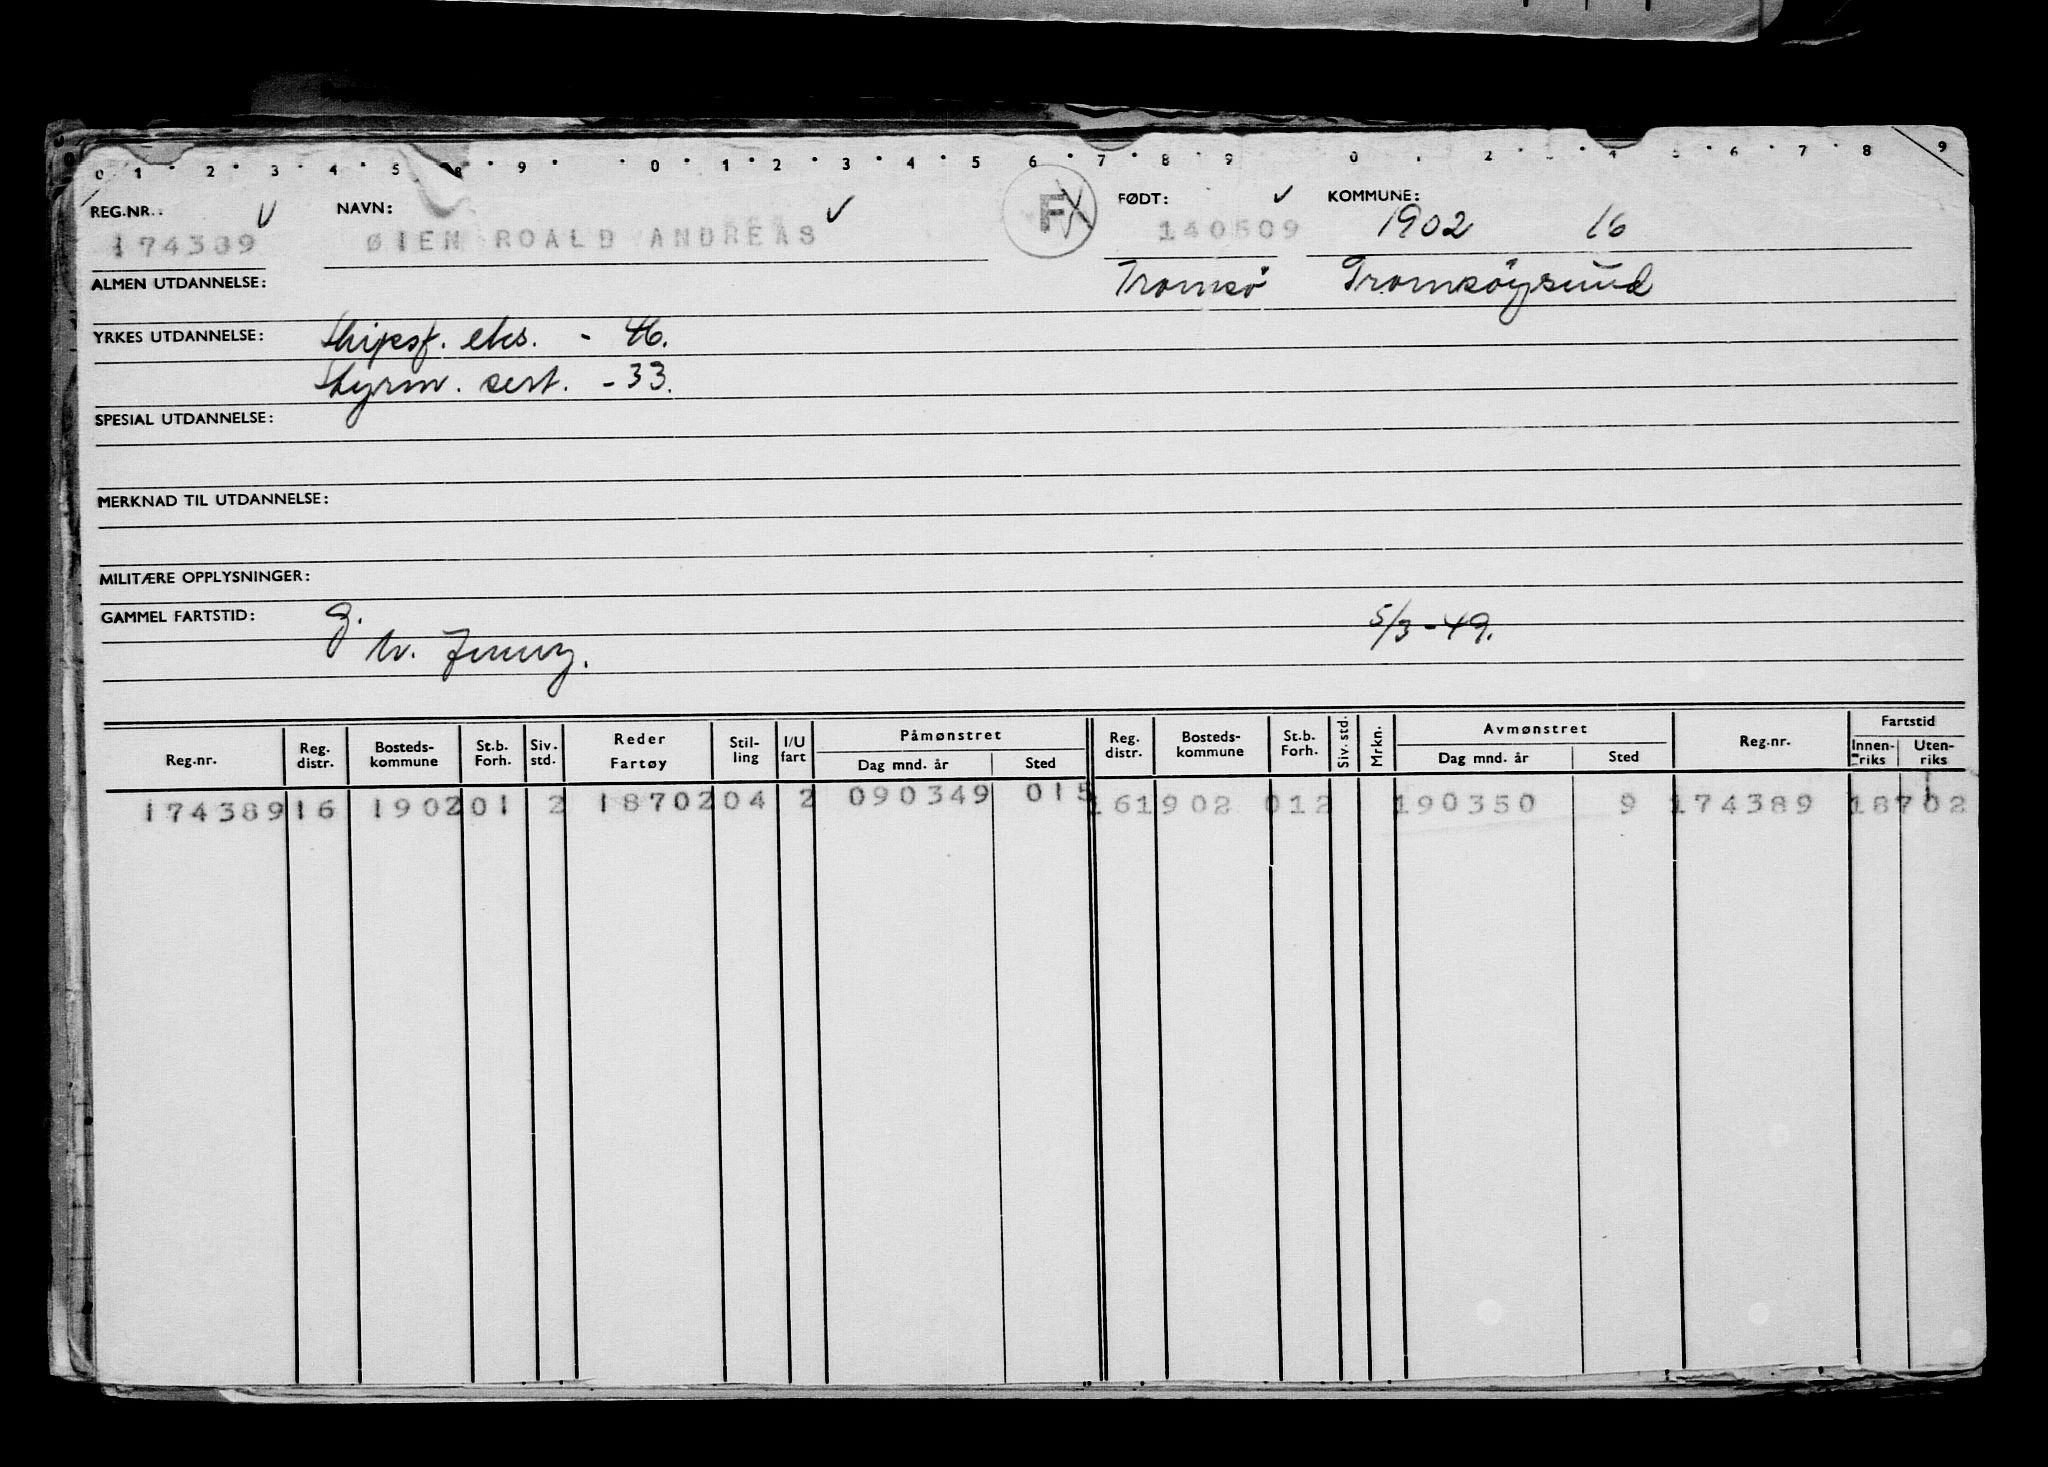 0 1 2 3 4 5 8 9 0 1 2 3 4 5 6 7 8 9 0 2 4 5 6 7 8 9
REG.NR.: NAVN: F FØDT: KOMMUNE:
174389 ØIEN ROALD ANDREAS 140509 1902 16
ALMEN UTDANNELSE: Tromsö Tromsöysund
YRKES UTDANNELSE: Skipsf. eks. - 46.
Styrm. sert. - 33.
SPESIAL UTDANNELSE:
MERKNAD TIL UTDANNELSE:
MILITÆRE OPPLYSNINGER:
GAMMEL FARTSTID: 5/3-49.
Reg.nr. Reg. distr. Bosteds-kommune St.b. Forh. Siv. std. Reder Fartøy Stil-ling I/U fart Påmønstret Dag mnd. år Sted Reg. distr. Bosteds-kommune St.b. Forh. Siv. std. Mrkn. Avmønstret Dag mnd. år Sted Reg.nr. Fartstid Innen-riks Uten-riks
174389 16 1902 01 2 18702 04 2 090349 015 16 1902 012 190350 9 174389 18702